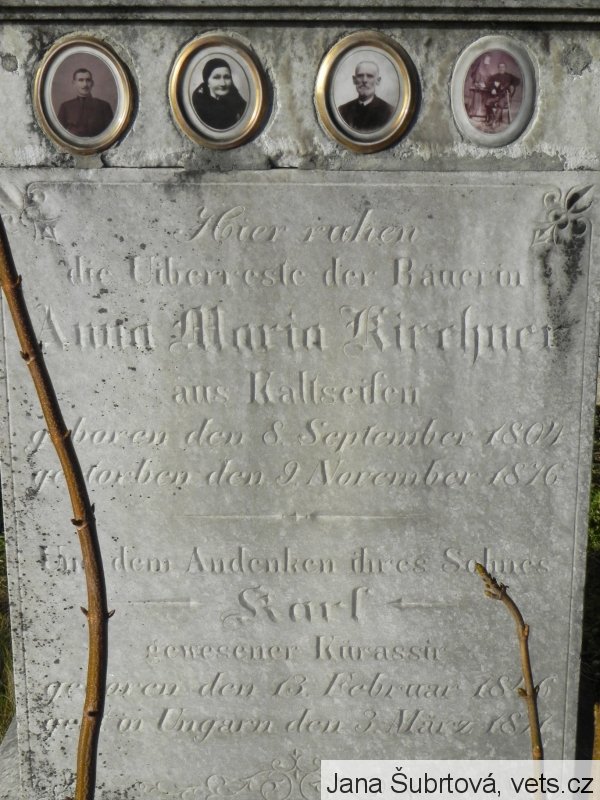 Hier ruhen
die Uiberreste der Bäuerin
Anna Maria Kirchner
aus Kaltseifen
geboren den 8. September 1804
gestorben den 9. November 1876
Und dem Andenken ihres Sohnes
Karl
gewesener Kürassir
geboren den 13. Februar
in Ungarn den 3. März
Jana Šubrtová, vets.cz